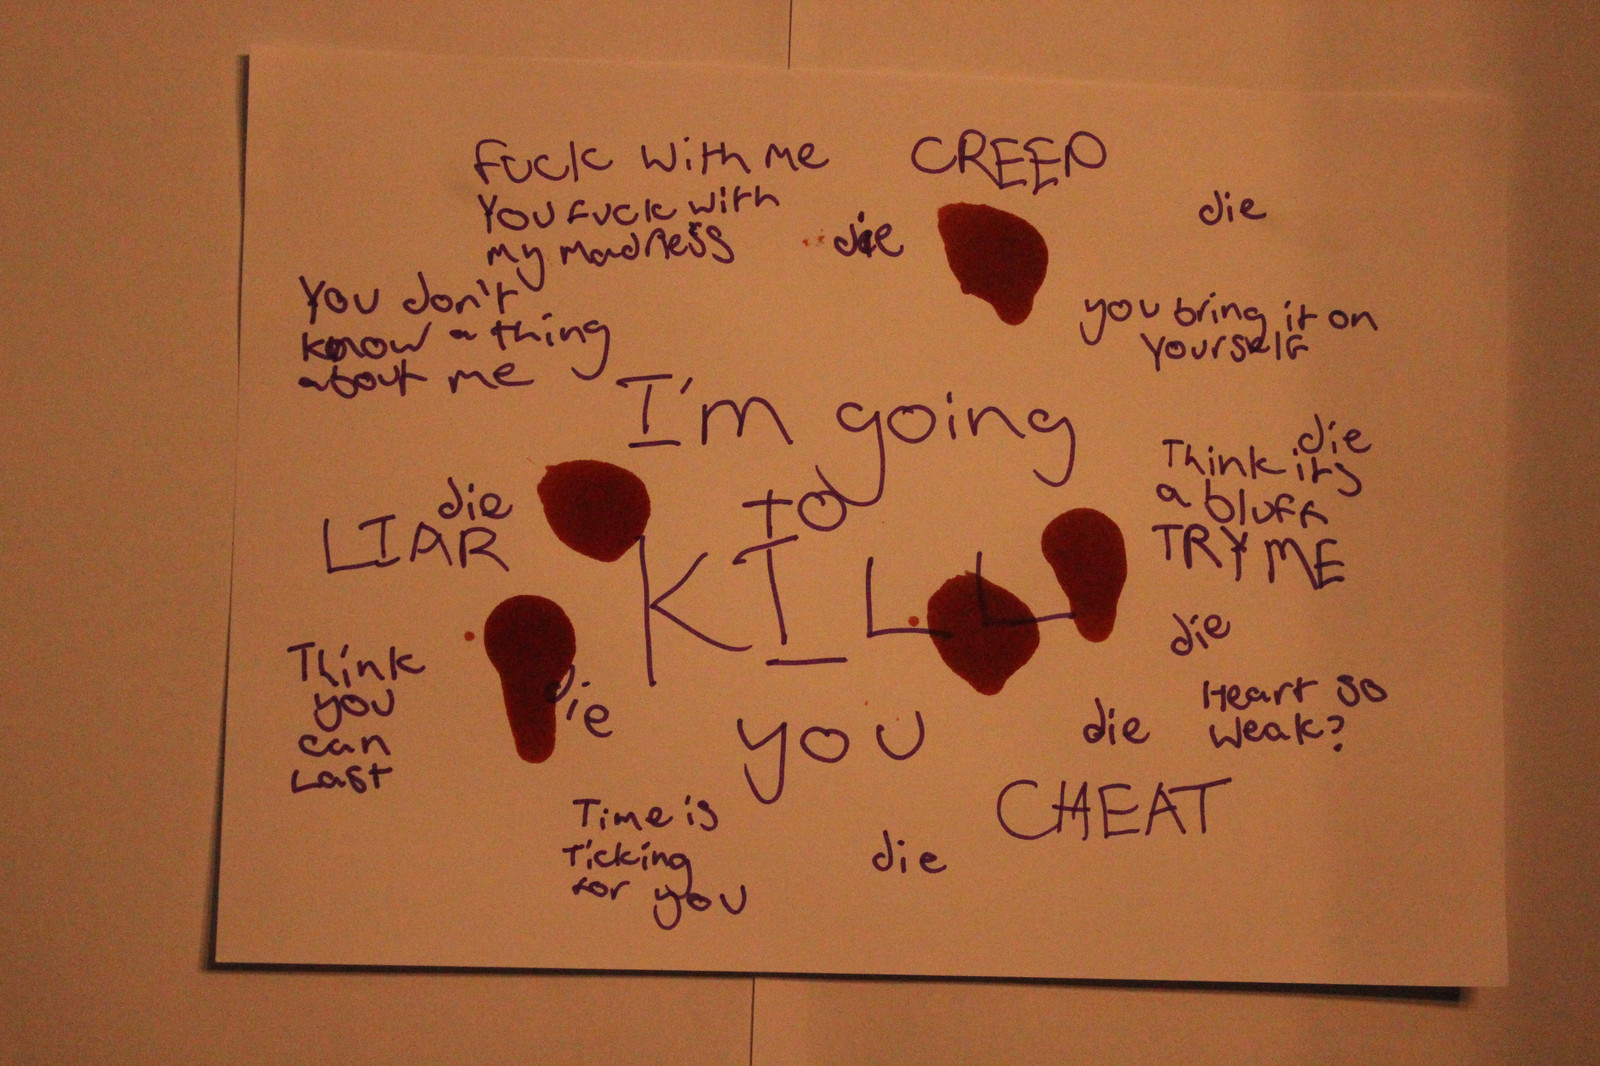 Fuck with me
You fuck with
my madness
CREEP
die
die
You don't
know a thing
about me
you bring it on
yourself
I'm going
to
KILL
you
die
LIAR
die
Think its
a bluff
TRY ME
die
Think
you
can
Last
die
die
Heart so
weak?
CHEAT
Time is
Ticking
for you
die